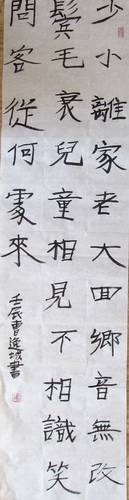 少小離家老大回鄉音無改
鬢毛衰兒童相見不相識笑
問客從何處來
壬辰曹逸書